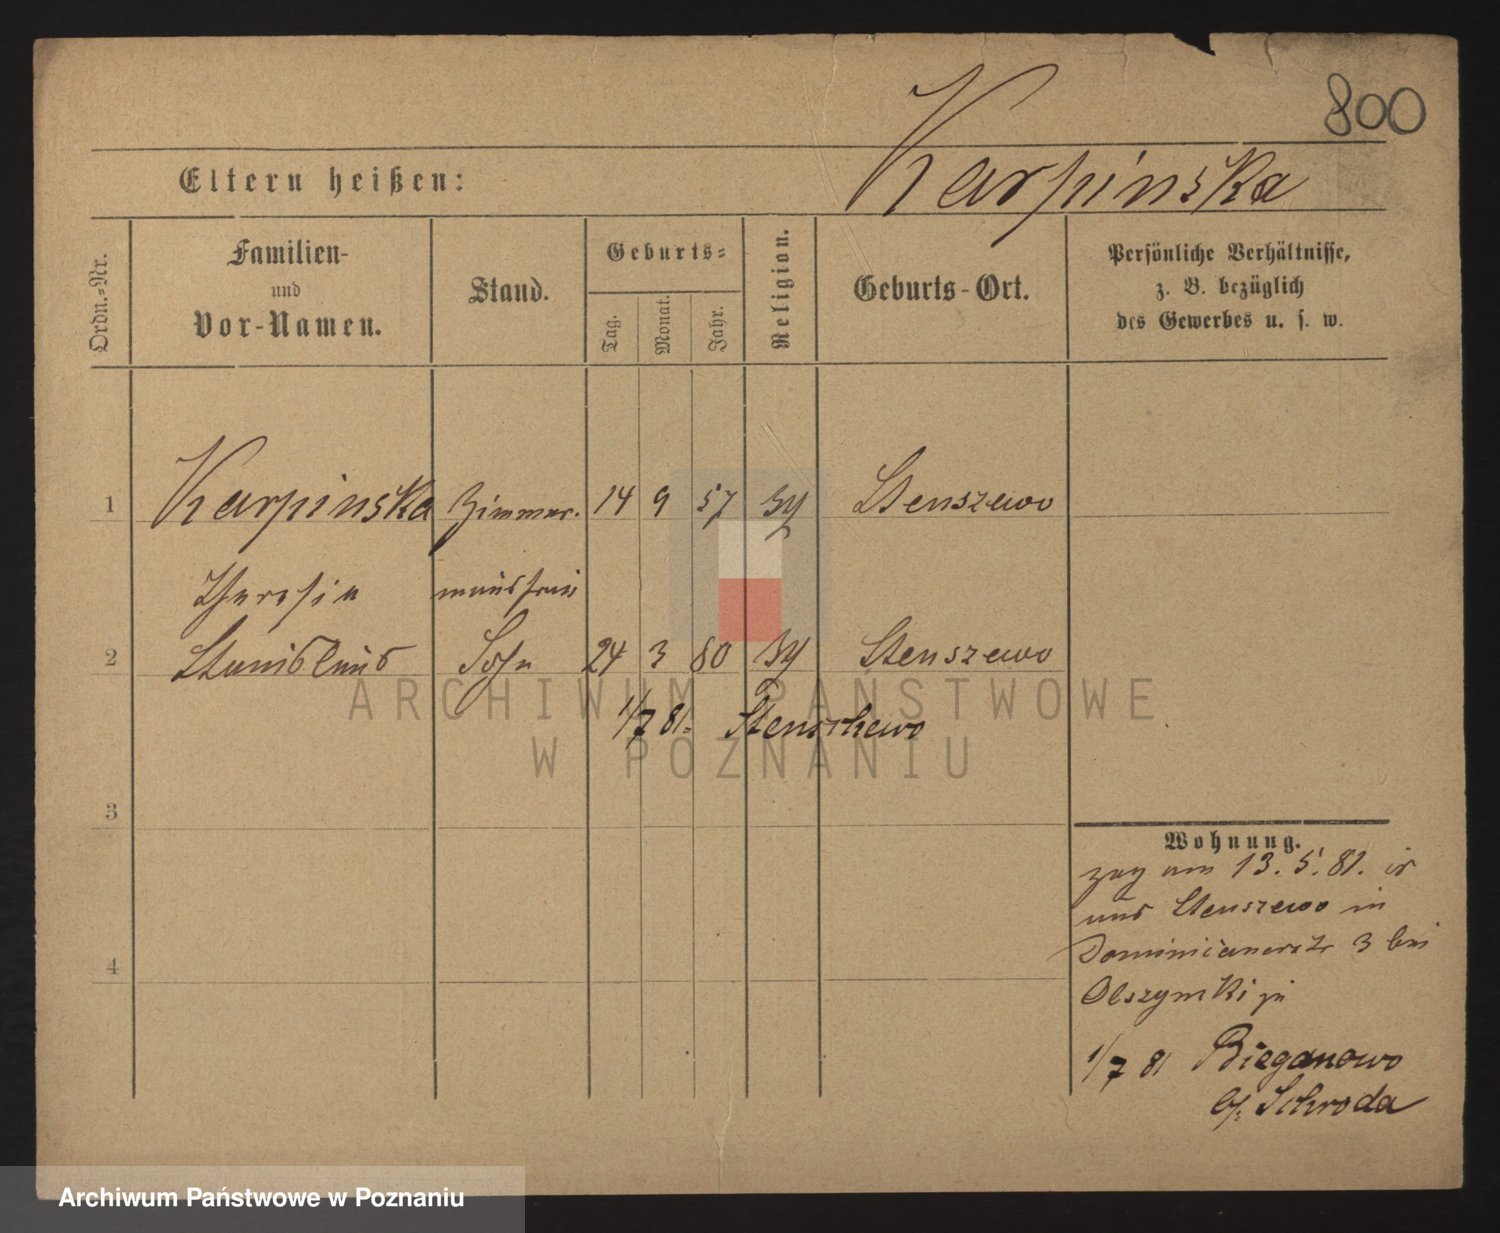 800
Karpinska
Eltern heißen:
Ordn.-Nr.
Familien-
und
Vor-Namen.
Stand.
Geburts-
Tag.
Monat.
Jahr.
Religion.
Geburts-Ort.
Persönliche Verhältnisse,
z. B. bezüglich
des Gewerbes u. s. w.
1 Karpinska Zimmer- 14 9 57 Stenszewo
Theresia mannsfrau
2 Stanislaus Sohn 24 3 80 Stenszewo
1/7 81. Stenschewo
3
4
Wohnung.
zog am 13. 5. 81.
aus Stenszewo in
Dominicanerstr 3 bei
Olszynski
1/7 81 Bieganowo
b/ Schroda
ARCHIWUM PAŃSTWOWE
W POZNANIU
Archiwum Państwowe w Poznaniu